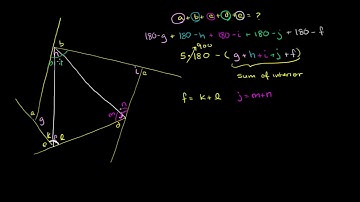 a + b + c + d + e = ?
180-g + 180-h + 180-i + 180-j + 180-f
900
5·180 - (g + h + i + j + f)
sum of interior
f = k+l j = m+n
b
h
i c
a
g
m n
j
d
k f l
e